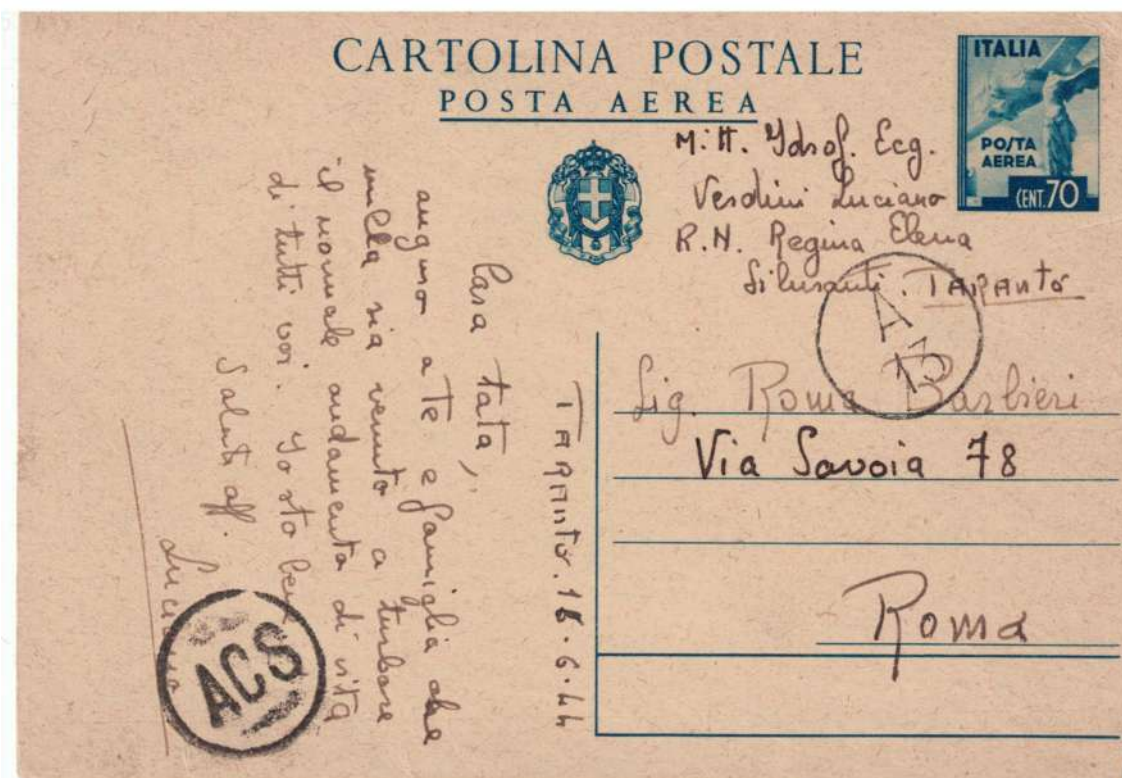 CARTOLINA POSTALE
POSTA AEREA
ITALIA
POSTA
AEREA
CENT. 70
Mitt. Idrof. Ecg.
Verdini Luciano
R.N. Regina Elena
TARANTO
A
13
Sig. Roma Barbieri
Via Savoia 78
Roma
TARANTO. 18.6.44
Cara tata,
auguro a te e famiglia che
nulla sia venuto a turbare
il normale andamento di vita
di tutti voi. Io sto bene
Saluti aff.
Luciano
ACS